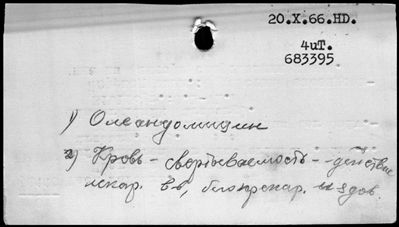 20.X.66.HD.
4uT.
683395
1) Олеандомицин
2) Кровь - свертываемость - действие
лекар. в-в, биопрепар. и здов.